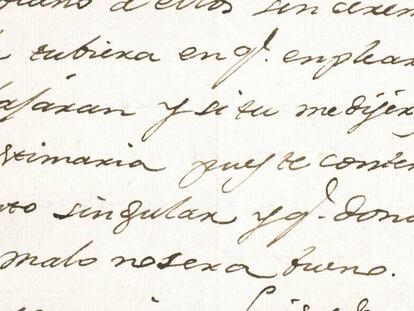 de ellos sin
tubiera en q.^e enplear
ajaran y si tu me dijer
stimaria pues te conten
to singular y q.^e dond
malo no sera bueno.